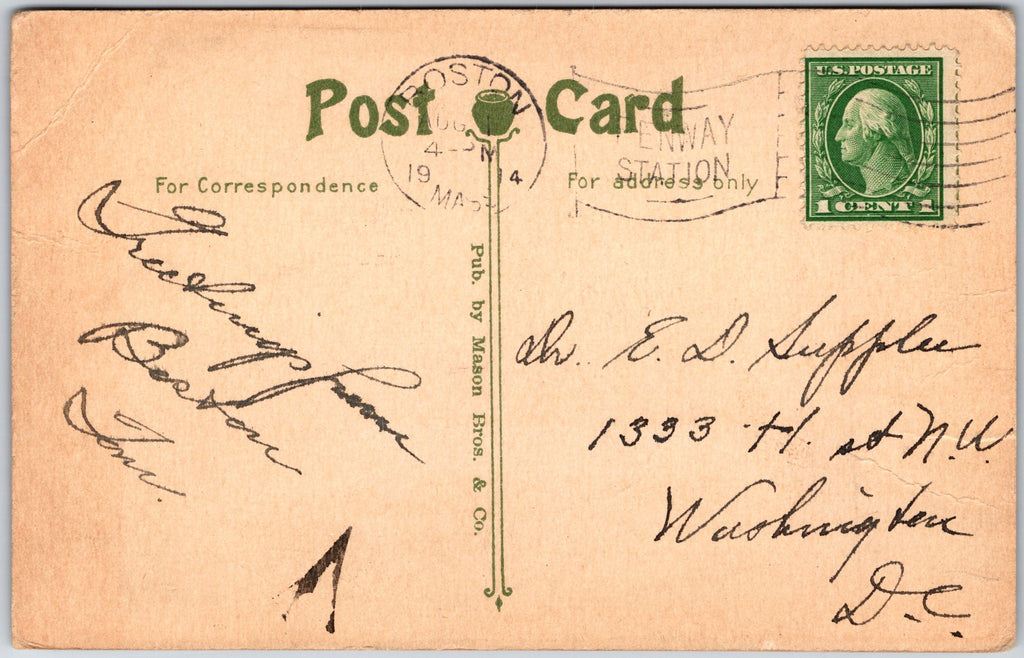 Post Card
BOSTON
AUG 1
4-PM
19 14
MASS
FENWAY
STATION
U.S. POSTAGE
1 CENT 1
For Correspondence
For address only
Pub. by Mason Bros. & Co.
Greetings from
Boston
Tom.
Dr. E. D. Supplee
1333 H. st N.W.
Washington
D.C.